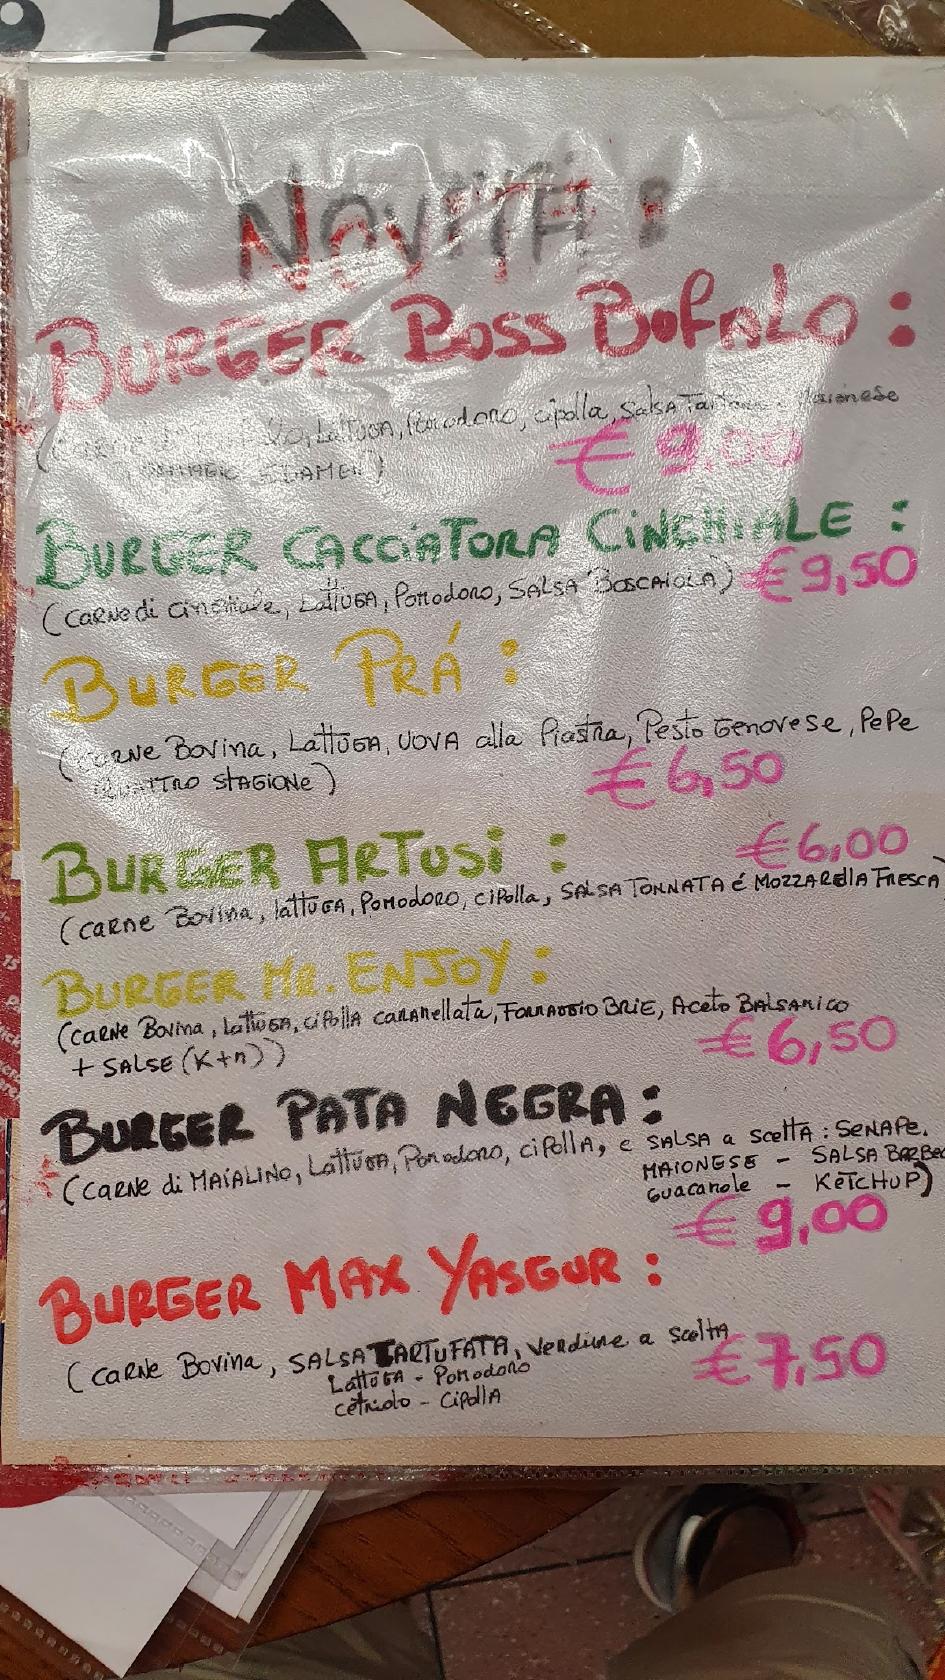 NOVITÀ :
BURGER BOSS BUFALO :
(CARNE di LATTUGA, Pomodoro, cipolla, SALSA Tartara Maionese
€ 9,00
BURGER CACCIATORA CINGHIALE :
(CARNE di cinghiale, LATTUGA, Pomodoro, SALSA BOSCAIOLA) € 9,50
BURGER PRÁ :
(CARNE BOVINA, LATTUGA, UOVA alla Piastra, Pesto Genovese, PePe
QUATTRO STAGIONE) € 6,50
BURGER ARTUSI : € 6,00
(CARNE BOVINA, lattuga, Pomodoro, cipolla, SALSA TONNATA é MOZZARELLA FRESCA)
BURGER MR. ENJOY :
(CARNE BOVINA, LATTUGA, cipolla caramellata, FORMAGGIO BRIE, Aceto BALSAMICO
+ SALSE (K+n)) € 6,50
BURGER PATA NEGRA :
(CARNE di MAIALINO, LATTUGA, Pomodoro, cipolla, e SALSA a scelta : SENAPE.
MAIONESE - SALSA BARBEC
Guacamole - KETCHUP)
€ 9,00
BURGER MAX YASGUR :
(CARNE BOVINA, SALSA TARTUFATA, Verdure a scelta
€ 7,50
LATTUGA - Pomodoro
cetriolo - Cipolla